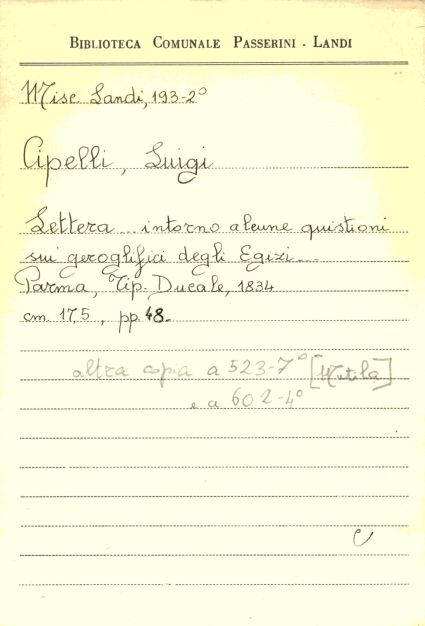 BIBLIOTECA COMUNALE PASSERINI - LANDI
Misc. Landi, 193-2°
Cipelli, Luigi
Lettera ... intorno alcune quistioni
sui geroglifici degli Egizi...
Parma, Tip. Ducale, 1834
cm 17,5, pp. 48.
altra copia a 523-7° [Mutila]
e a 602-4°
C